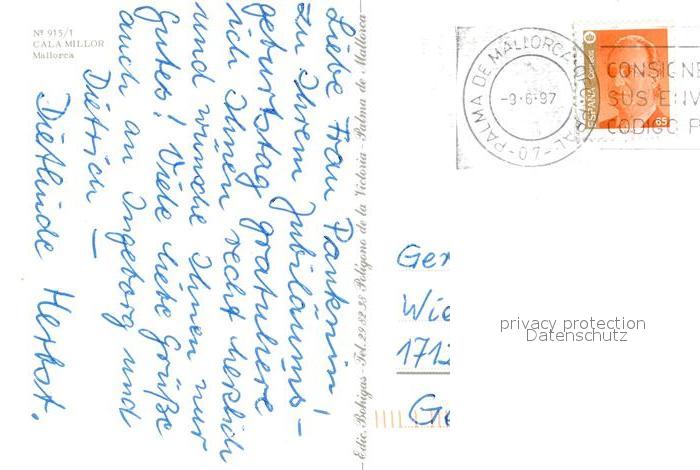 Nº 915/1
CALA MILLOR
Mallorca
Liebe Frau Pankrin!
Zu Ihrem Jubiläums-
geburtstag gratuliere
ich Ihnen recht herzlich
und wünsche Ihnen nur
Gutes! Viele liebe Grüße
auch an Ingeborg und
Dietrich –
Dietlinde Herbst.
Edic. Bohigas - Tel. 29 82 38 Polígono de la Victoria - Palma de Mallorca
PALMA DE MALLORCA
-9-6-97
-07-
ESPAÑA
Correos
65
CONSIGNE
SUS ENV
CODIGO P
Ger
Wie
1712
Ge
privacy protection
Datenschutz